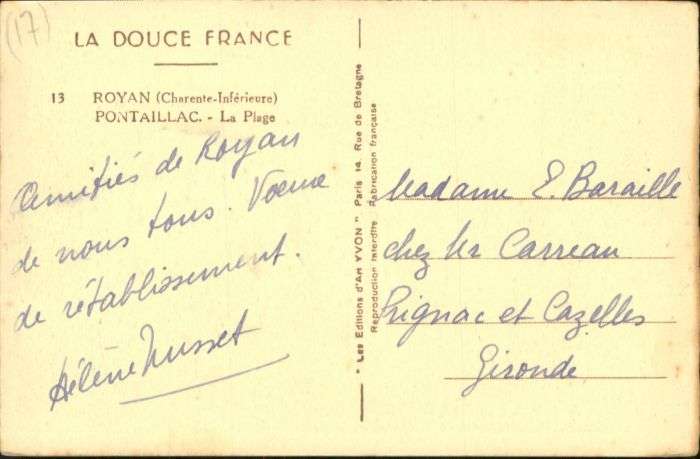 (17)
LA DOUCE FRANCE
13 ROYAN (Charente-Inférieure)
PONTAILLAC. - La Plage
Amitiés de Royan
de nous tous. Voeux
de rétablissement.
Hélène Musset
" Les Editions d'Art YVON " Paris 14, Rue de Bretagne
Reproduction interdite Fabrication française
Madame E. Baraille
chez Mr Carreau
Prignac et Cazelles
Gironde